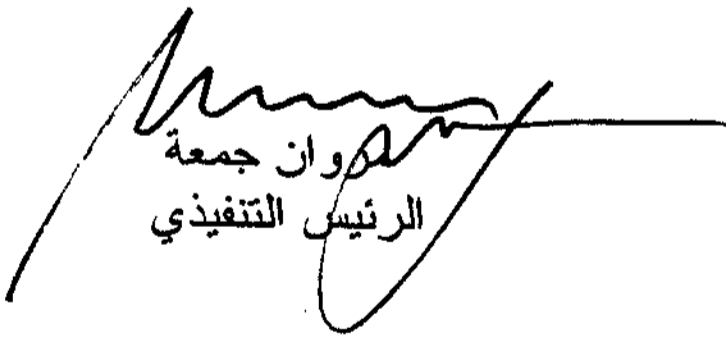 مروان جمعة
الرئيس التنفيذي